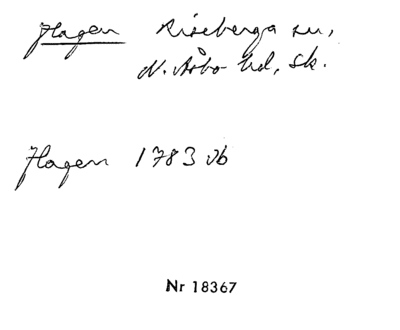 Hagen Riseberga sn,
N. Åsbo hd, Sk.
Hagen 1783 vb
Nr 18367